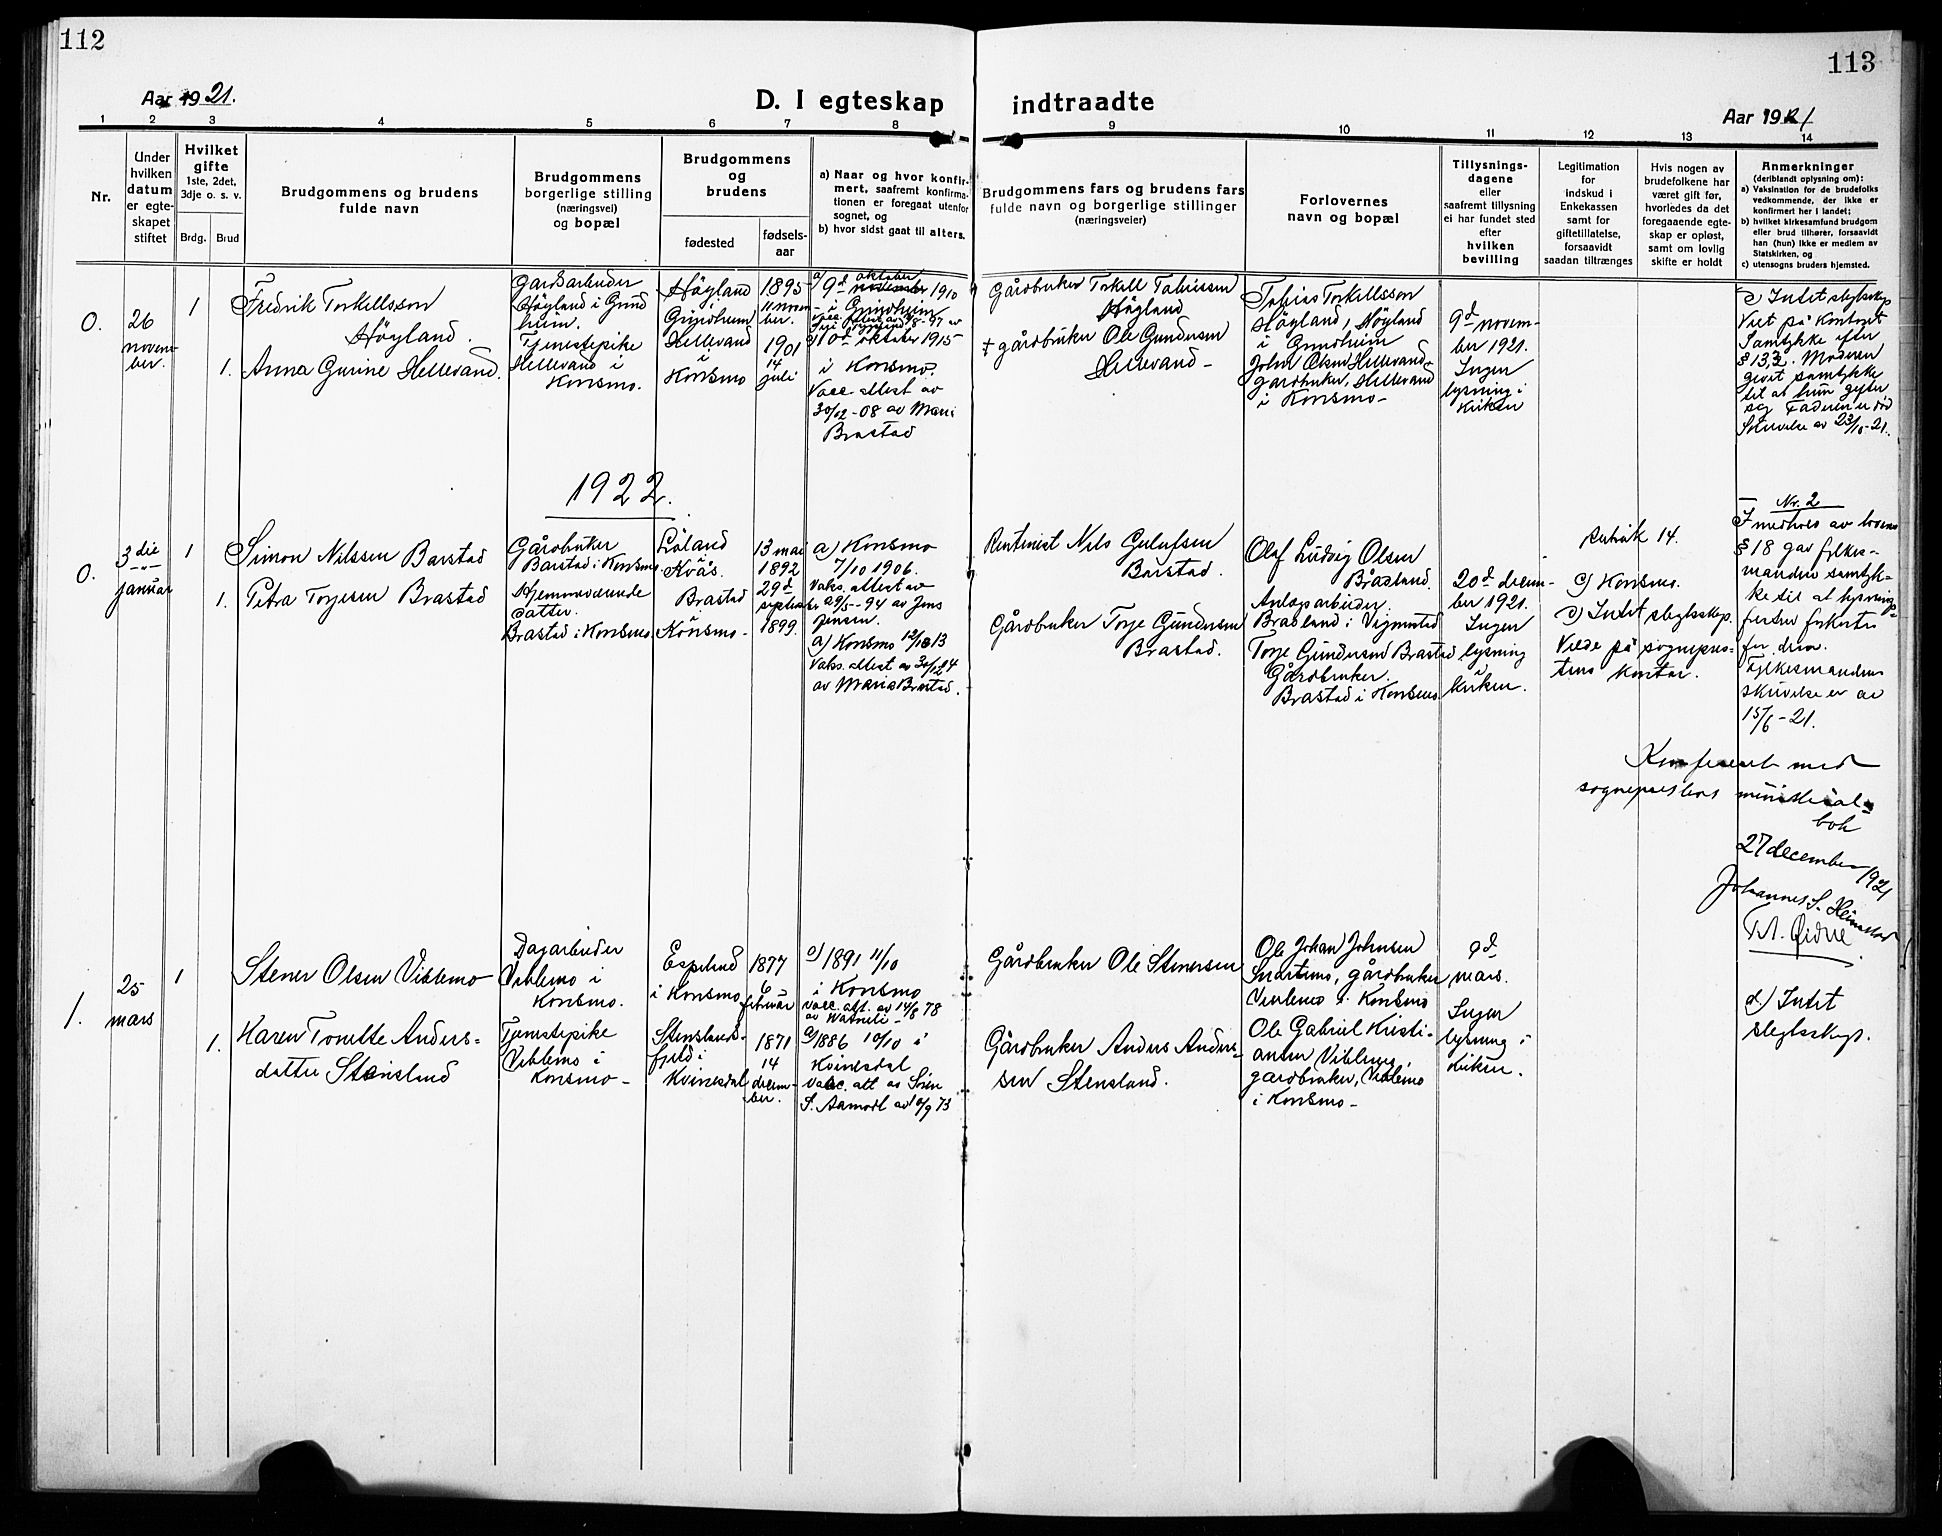 112
113
Aar 1921.
D. I egteskap indtraadte
Aar 1921
1 2 3 4 5 6 7 8 9 10 11 12 13 14
Nr.
Under
hvilken
datum
er egte-
skapet
stiftet
Hvilket
gifte
1ste, 2det,
3dje o. s. v.
Brdg. Brud
Brudgommens og brudens
fulde navn
Brudgommens
borgerlige stilling
(næringsvei)
og bopæl
Brudgommens
og
brudens
fødested
fødsels-
aar
a) Naar og hvor konfir-
mert, saafremt konfirma-
tionen er foregaat utenfor
sognet, og
b) hvor sidst gaat til alters.
Brudgommens fars og brudens fars
fulde navn og borgerlige stillinger
(næringsveier)
Forlovernes
navn og bopæl
Tillysnings-
dagene
eller
saafremt tillysning
ei har fundet sted
efter
hvilken
bevilling
Legitimation
for
indskud i
Enkekassen
samt for
giftetillatelse,
forsaavidt
saadan tiltrænges
Hvis nogen av
brudefolkene har
været gift før,
hvorledes da det
foregaaende egte-
skap er opløst,
samt om lovlig
skifte er holdt
Anmerkninger
(deriblandt oplysning om):
a) Vaksination for de brudefolks
vedkommende, der ikke er
konfirmert her i landet;
b) hvilket kirkesamfund brudgom
eller brud tilhører, forsaavidt
han (hun) ikke er medlem av
Statskirken, og
c) utensogns bruders hjemsted.
0.
26
novem-
ber.
1
Fredrik Torkellsson
Høyland.
1.
Anna Gurine Hellevand.
Gardsarbeider
Høyland i Grind
heim.
Tjenestepike
Hellevand i
Konsmo.
Høyland
Grindheim
Hellevand
i
Konsmo
1895
11. novem
ber.
1901
14
juli
a)
oktober
9d november 1910
i Grindheim
10d oktober 1915
i Konsmo.
Vacc. attest av
30/12-08 av Mari
Brastad
Gårdbruker Torkell Tobiessen
Høyland
† gårdbruker Ole Gundersen
Hellevand -
Tobias Torkellsson
Høyland, Høyland
i Grindheim
Johan Olsen Hellevand
gardbruker, Hellevand
i Konsmo -
9d novem-
ber 1921.
Ingen
lysning i
kirken
c) Intet slegtskap
Viet på kontoret
Samtykke efter
§ 13,2. Moderen
gevet samtykke
til at hun gifter
seg Faderen er død
Skrivelse av 23/10-21.
1922.
0.
3die
januar
1
Simon Nilssen Barstad
1.
Petra Torjesen Brastad
Gårdbruker
Barstad i Konsmo.
Hjemmeværende
datter.
Brastad i Konsmo
Löland
Kvås.
Brastad
Konsmo -
13 mai
1892
29d
september
1899.
a) Konsmo
7/10 1906.
Vaks. attest av
29/5-94 av Jens
Jensen.
a) Konsmo 12/10 13
Vaks. attest av 30/12 04
av Maria Brastad.
Rentenist Nils Gulufsen
Barstad.
Gårdbruker Torje Gundersen
Brastad.
Olaf Ludvig Olsen
Braaland.
Anlæparbeider.
Braaland i Vigmostad
Torje Gundersend Brastad
Gårdbruker.
Brastad i Konsmo
20d decem-
ber 1921.
Ingen
lysning
i
kirken.
Rubrik 14.
c) Konsmo.
d) Intet slegtskap.
Viede på sogepres-
tens kontor.
Nr. 2
I medhold av lovens
§ 18 gav fylkes-
manden samtyk-
ke til at lysnings-
fristen forkortes
for dem.
Fylkesmandens
skrivelse er av
15/6-21.
Konfereret med
sogneprestens ministerial-
bok
27 december 1921
Johannes S. Heimstad
T. A. Øidne
1.
25
mars
1
Stener Olsen Viblemo
1.
Karen Tonette Anders-
datter Stensland
Dagarbeider
Viblemo i
Konsmo.
Tjenestepike
Viblemo i
Konsmo -
Espelund
i Konsmo
Stenslands-
fjeld i
Kvinesdal
1877
6
februar
1871
14
decem-
ber.
a) 1891 11/10
i Konsmo
vacc. att. av 14/8 78
av Watneli -
a) 1886 10/10 i
Kvinesdal
Vacc. att av Sven
S. Aamodt av 10/9 73
Gårdbruker Ole Stenersen
Gårdbruker Anders Anders-
sen Stensland.
Ole Johan Johnsen
Snartemo, gårdbruker
Viblemo i Konsmo
Ole Gabriel Kristi-
ansen Viblemo,
gardbruker, Viblemo
i Konsmo -
9d
mars.
Ingen
lysning i
kirken.
d) Intet
slegtskap.